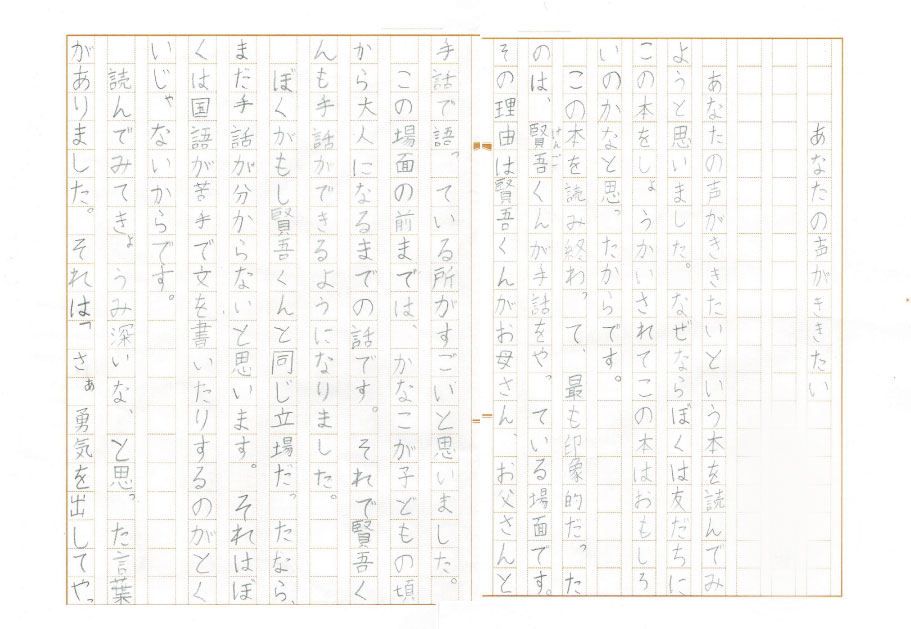 あなたの声がききたい
あなたの声がききたいという本を読んでみ
ようと思いました。なぜならぼくは友だちに
この本をしょうかいされてこの本はおもしろ
いのかなと思ったからです。
この本を読み終わって、最も印象的だった
のは、賢吾くんが手話をやっている場面です。
けんご
その理由は賢吾くんがお母さん、お父さんと
手話で語っている所がすごいと思いました。
この場面の前までは、かなこが子どもの頃
から大人になるまでの話です。それで賢吾く
んも手話ができるようになりました。
ぼくがもし賢吾くんと同じ立場だったなら、
まだ手話が分からないと思います。それはぼ
くは国語が苦手で文を書いたりするのがとく
いじゃないからです。
読んでみてきょうみ深いな、と思った言葉
がありました。それは「さぁ勇気を出してやっ